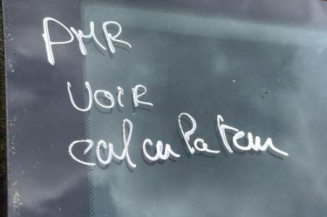 PMR
VOIR
calculateur